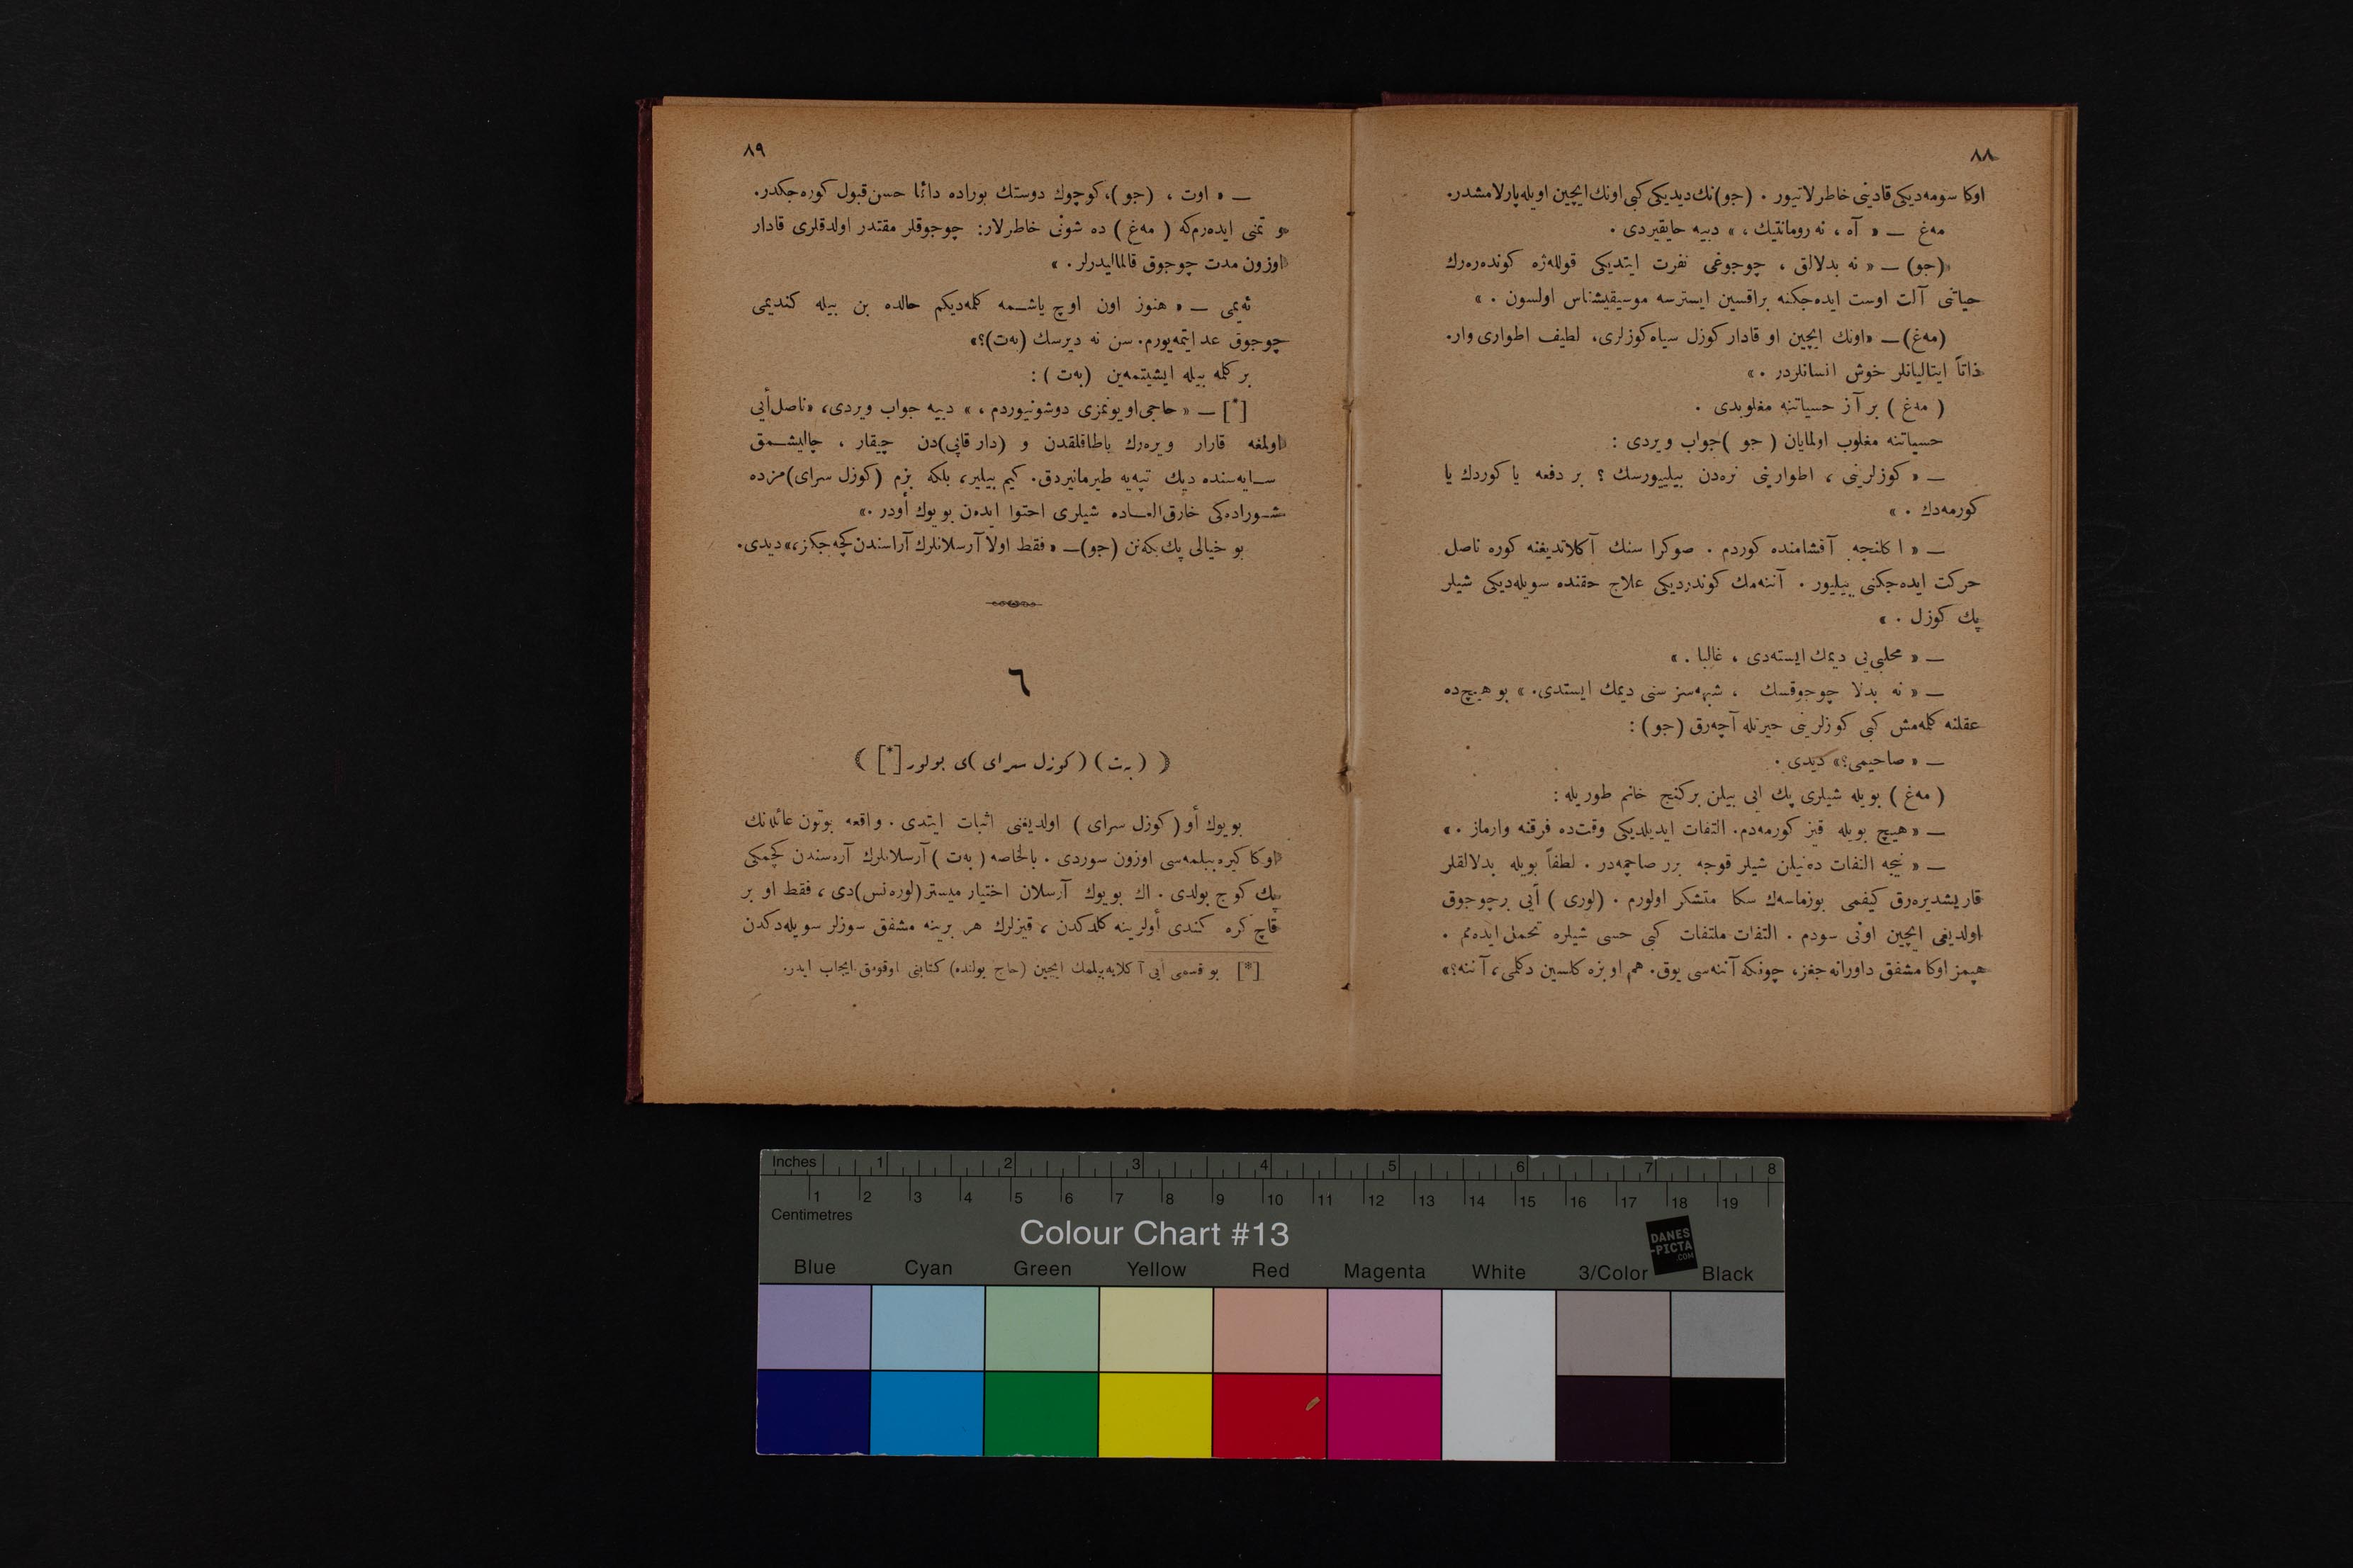 ٨٨
اوكا سومه‌ديكى قادينى خاطرلاتيور . (جو)نك ديديكى كبى اونك ايچين اويله پارلامشدر.
مه‌غ — « آه ، نه رومانتيك ، » دييه حايقيردى .
(جو) — « نه بدلالق ، چوجوغى نفرت ايتديكى قولله‌ژه كونده‌ره‌رك
حياتى آلت اوست ايده‌جكنه براقسين ايسترسه موسيقيشناس اولسون . »
(مه‌غ) — «اونك ايچين او قادار كوزل سياه كوزلرى، لطيف اطوارى وار.
ذاتاً ايتاليانلر خوش انسانلردر . »
( مه‌غ ) بر آز حسياتنه مغلوبدى .
حسياتنه مغلوب اولمايان ( جو ) جواب ويردى :
— « كوزلرينى ، اطوارينى نره‌دن بيليورسك ؟ بر دفعه يا كوردك يا
كورمه‌دك . »
— « اكلنجه آقشامنده كوردم . صوكرا سنك آكلاتديغنه كوره ناصل
حركت ايده‌جكنى بيليور . آننه‌مك كوندرديكى علاج حقنده سويله‌ديكى شيلر
پك كوزل . »
— « محلبى‌يى ديمك ايسته‌دى ، غالبا . »
— « نه بدلا چوجوقسك ، شبهه‌سز سنى ديمك ايستدى. » بو هيچ ده
عقلنه كلمه‌مش كبى كوزلرينى حيرتله آچه‌رق (جو) :
— « صاحيمى؟» ديدى .
( مه‌غ ) بويله شيلرى پك ايى بيلن بر كنج خانم طوريله :
— « هيچ بويله قيز كورمه‌دم. التفات ايديلديكى وقت‌ده فرقنه وارماز . »
— « نيجه التفات ده‌نيلن شيلر قوجه برر صاچمه‌در . لطفاً بويله بدلالقلر
قاريشديره‌رق كيفمى بوزماسه‌ك سكا متشكر اولورم . (لورى ) أيى بر چوجوق
اولديغى ايچين اونى سودم . التفات ملتفات كبى حسى شيلره تحمل ايده‌مم .
هپمز اوكا مشفق داورانه‌جغز، چونكه آننه‌سى يوق. هم او بزه كلسين دكلمى، آننه؟»
٨٩
— « اوت ، (جو)، كوچوك دوستك بوراده دائما حسن قبول كوره‌جكدر.
و تمنى ايده‌رم كه ( مه‌غ ) ده شونى خاطرلار: چوجوقلر مقتدر اولدقلرى قادار
اوزون مدت چوجوق قالمااليدرلر . »
ئه‌يمى — « هنوز اون اوچ ياشـمه كلمه‌ديكم حالده بن بيله كنديمى
چوجوق عد ايتمه‌يورم. سن نه ديرسك (به‌ت)؟»
بر كلمه بيله ايشيتمه‌ين (به‌ت ) :
[*] — « حاجى اويونمزى دوشونيوردم ، » دييه جواب ويردى، «ناصل أيى
اولمغه قارار ويره‌رك باطاقلقدن و (دار قاپى)دن چيقار ، چاليشـمق
سـايه‌سنده ديك تپه‌يه طيرمانيردق. كيم بيلير، بلكه بزم (كوزل سراى)مزده
شـوراده‌كى خارق‌العـاده شيلرى احتوا ايده‌ن بويوك أودر .»
بو خيالى پك بكه‌نن (جو) — « فقط اولا آرسلانلرك آراسندن كچه‌جكز،» ديدى.
٦
﴿ (به‌ت) (كوزل سراى)ى بولور [*] ﴾
بويوك أو (كوزل سراى ) اولديغنى اثبات ايتدى . واقعه بوتون عائله‌نك
اوكا كيره‌بيلمه‌سى اوزون سوردى . بالخاصه ( به‌ت ) آرسلانلرك آره‌سندن كچمكى
پك كوج بولدى . اك بويوك آرسلان اختيار ميستر (لوره‌نس)دى ، فقط او بر
قاچ كره كندى أولرينه كلدكدن ، قيزلرك هر برينه مشفق سوزلر سويله‌دكدن
[*] بو قسمى ايى آكلايه‌بيلمك ايچين (حاج يولنده) كتابنى اوقومق ايجاب ايدر.
Inches 1 2 3 4 5 6 7 8
1 2 3 4 5 6 7 8 9 10 11 12 13 14 15 16 17 18 19
Centimetres
Colour Chart #13
DANES
-PICTA
.COM
Blue Cyan Green Yellow Red Magenta White 3/Color Black